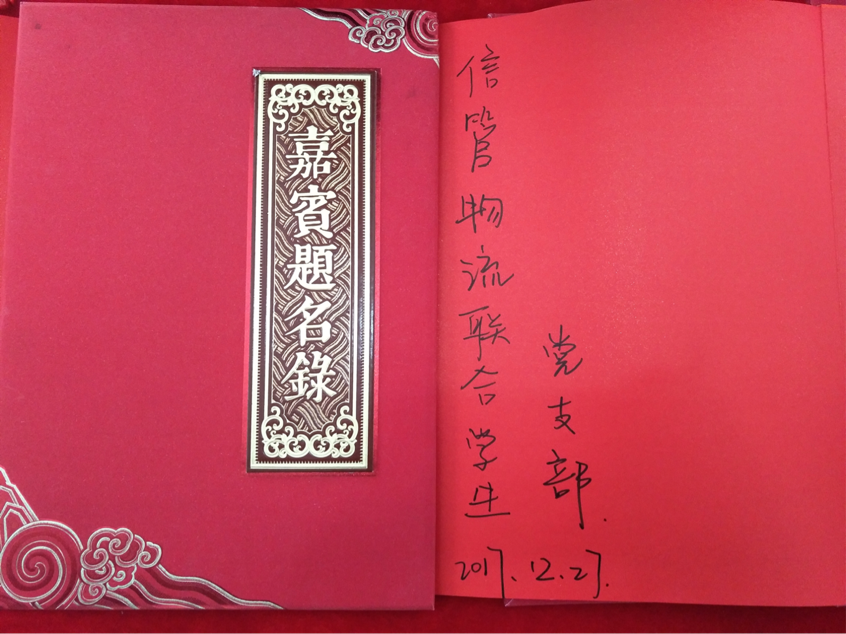 嘉賓題名錄
信管物流联合学生
党支部.
2017.12.27.